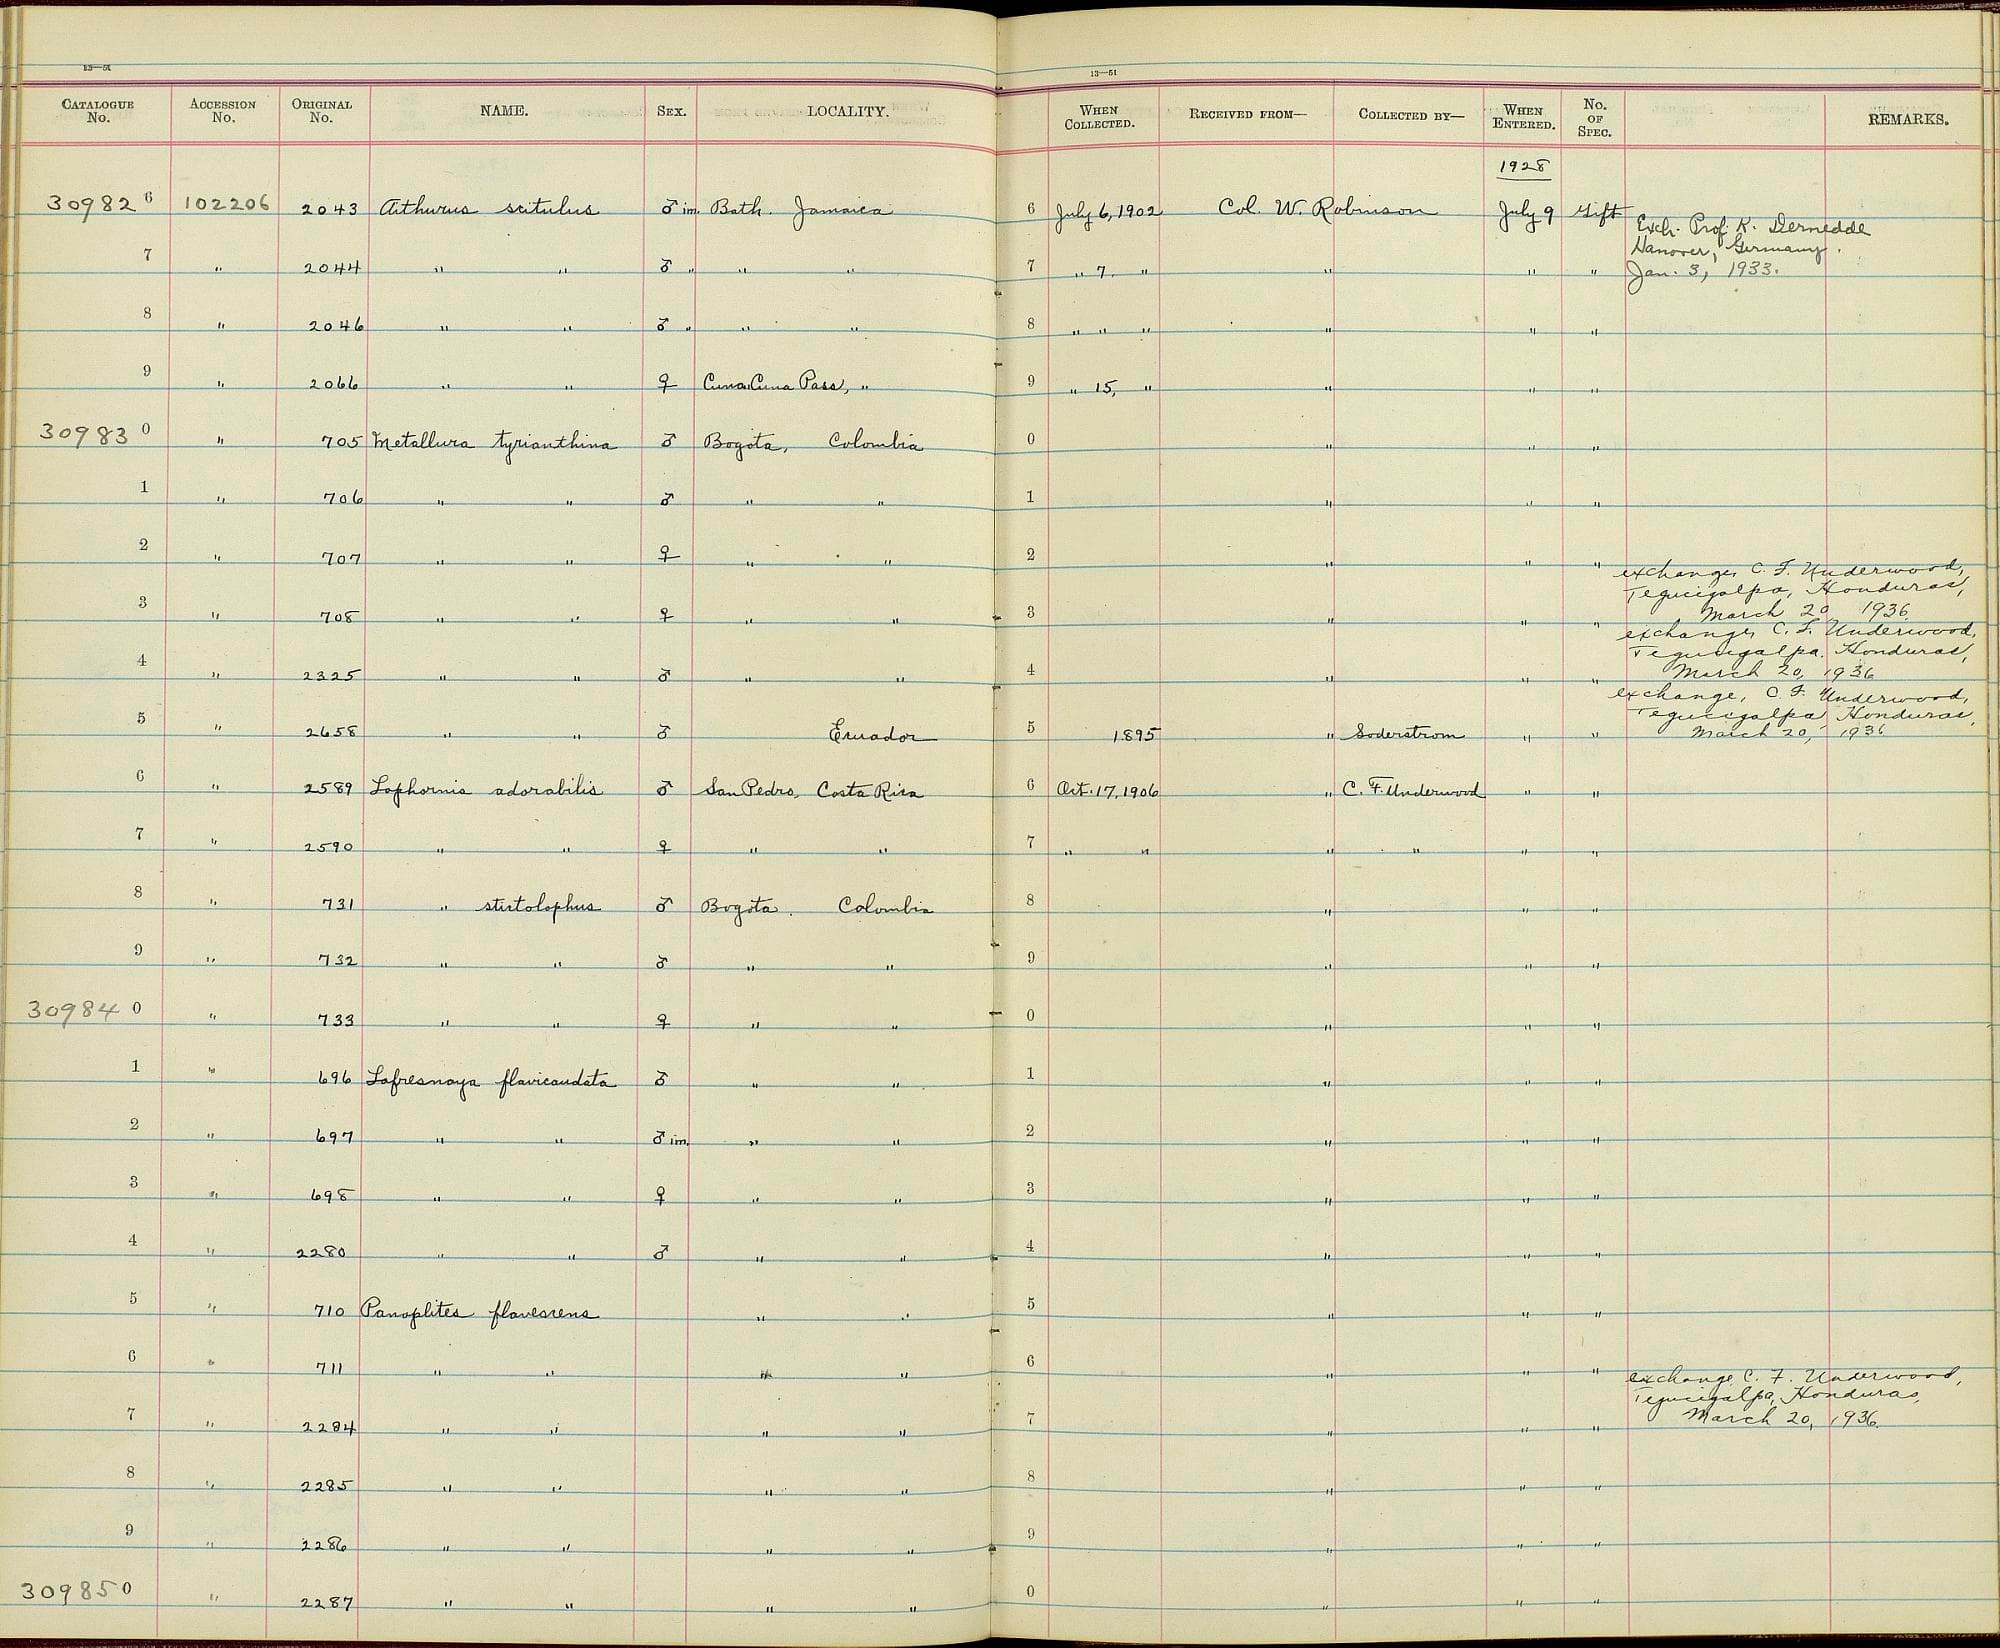 13—51
13—51
CATALOGUE No. ACCESSION No. ORIGINAL No. NAME. SEX. LOCALITY. WHEN COLLECTED. RECEIVED FROM— COLLECTED BY— WHEN ENTERED. No. OF SPEC. REMARKS.
1928
309826 102206 2043 Aithurus scitulus ♂ im. Bath. Jamaica 6 July 6, 1902 Col. W. Robinson July 9 Gift
Exch. Prof. K. Dernedde
Hanover, Germany.
7 " 2044 " " ♂ " " " 7 " 7, " " " " Jan. 3, 1933.
8 " 2046 " " ♂ " " " 8 " " " " " "
9 " 2066 " " ♀ Cuna Cuna Pass, " 9 " 15, " " " "
309830 " 705 Metallura tyrianthina ♂ Bogota, Colombia 0 " " "
1 " 706 " " ♂ " " 1 " " "
2 " 707 " " ♀ " " 2 " " "
exchange, C. F. Underwood,
Tegucigalpa, Honduras,
3 " 708 " " ♀ " " 3 " " " March 20, 1936
exchange, C. F. Underwood,
Tegucigalpa, Honduras,
4 " 2325 " " ♂ " " 4 " " " March 20, 1936
exchange, C. F. Underwood,
Tegucigalpa, Honduras,
5 " 2658 " " ♂ Ecuador 5 1895 " Soderstrom " " March 20, 1936
6 " 2589 Lophornis adorabilis ♂ San Pedro, Costa Rica 6 Oct. 17, 1906 " C. F. Underwood " "
7 " 2590 " " ♀ " " 7 " " " " " "
8 " 731 " stictolophus ♂ Bogota. Colombia 8 " " "
9 " 732 " " ♂ " " 9 " " "
309840 " 733 " " ♀ " " 0 " " "
1 " 696 Lafresnaya flavicaudata ♂ " " 1 " " "
2 " 697 " " ♂ im. " " 2 " " "
3 " 698 " " ♀ " " 3 " " "
4 " 2280 " " ♂ " " 4 " " "
5 " 710 Panoplites flavescens " " 5 " " "
6 " 711 " " " " 6 " " "
exchange C. F. Underwood,
Tegucigalpa, Honduras,
7 " 2284 " " " " 7 " " " March 20, 1936.
8 " 2285 " " " " 8 " " "
9 " 2286 " " " " 9 " " "
309850 " 2287 " " " " 0 " " "